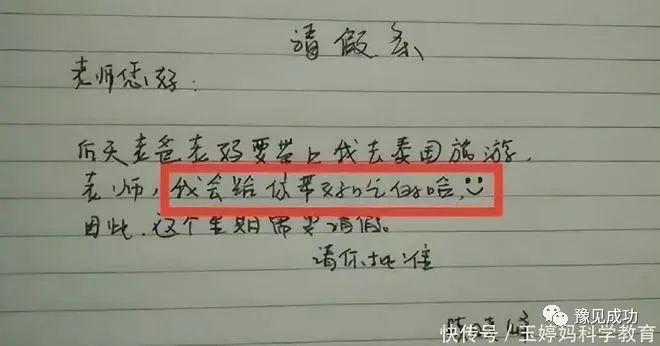 请假条
老师您好：
后天老爸老妈要带上我去泰国旅游，
老师，我会给你带好吃的哈，
因此，这个星期需要请假。
请你批准
豫见成功
快传号／玉婷妈科学教育